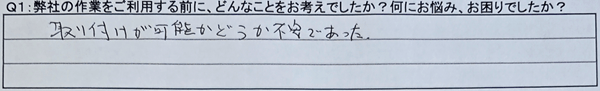 Q1:弊社の作業をご利用する前に、どんなことをお考えでしたか？何にお悩み、お困りでしたか？
取り付けが可能かどうか不安であった.